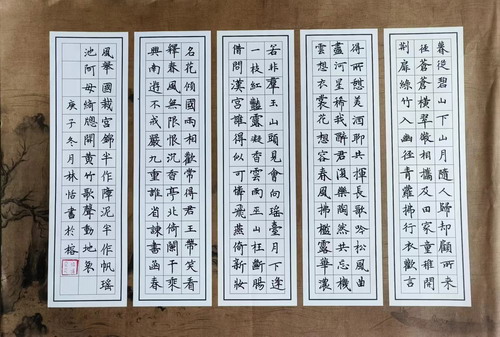 暮從碧山下山月隨人歸却顧所来
徑蒼蒼橫翠微相攜及田家童稚開
荆扉綠竹入幽徑青蘿拂行衣歡言
得所憩美酒聊共揮長歌吟松風曲
盡河星稀我醉君復樂陶然共忘機
雲想衣裳花想容春風拂檻露華濃
若非羣玉山頭見會向瑶臺月下逢
一枝紅艷露凝香雲雨巫山枉斷腸
借問漢宮誰得似可憐飛燕倚新妝
名花傾國兩相歡常得君王帶笑看
釋春風無限恨沉香亭北倚闌干乘
興南遊不戒嚴九重誰省諫書函春
風舉國裁宮錦半作障泥半作帆瑶
池阿母綺窻開黃竹歌聲動地哀
庚子冬月林恬書於榕